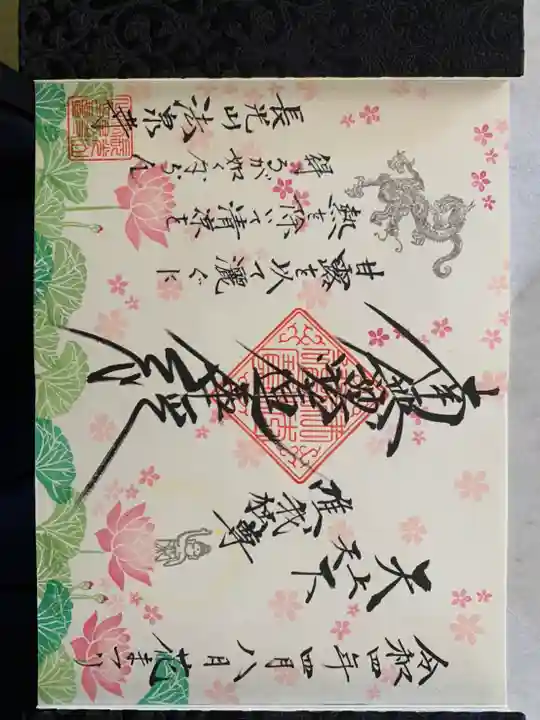 令和四年四月八日花まつり
天上天下
唯我独尊
南無妙法蓮華経
甘露を以て灑ぐに
熱を除いて清涼を
得るが如くならん
長光山法泉寺